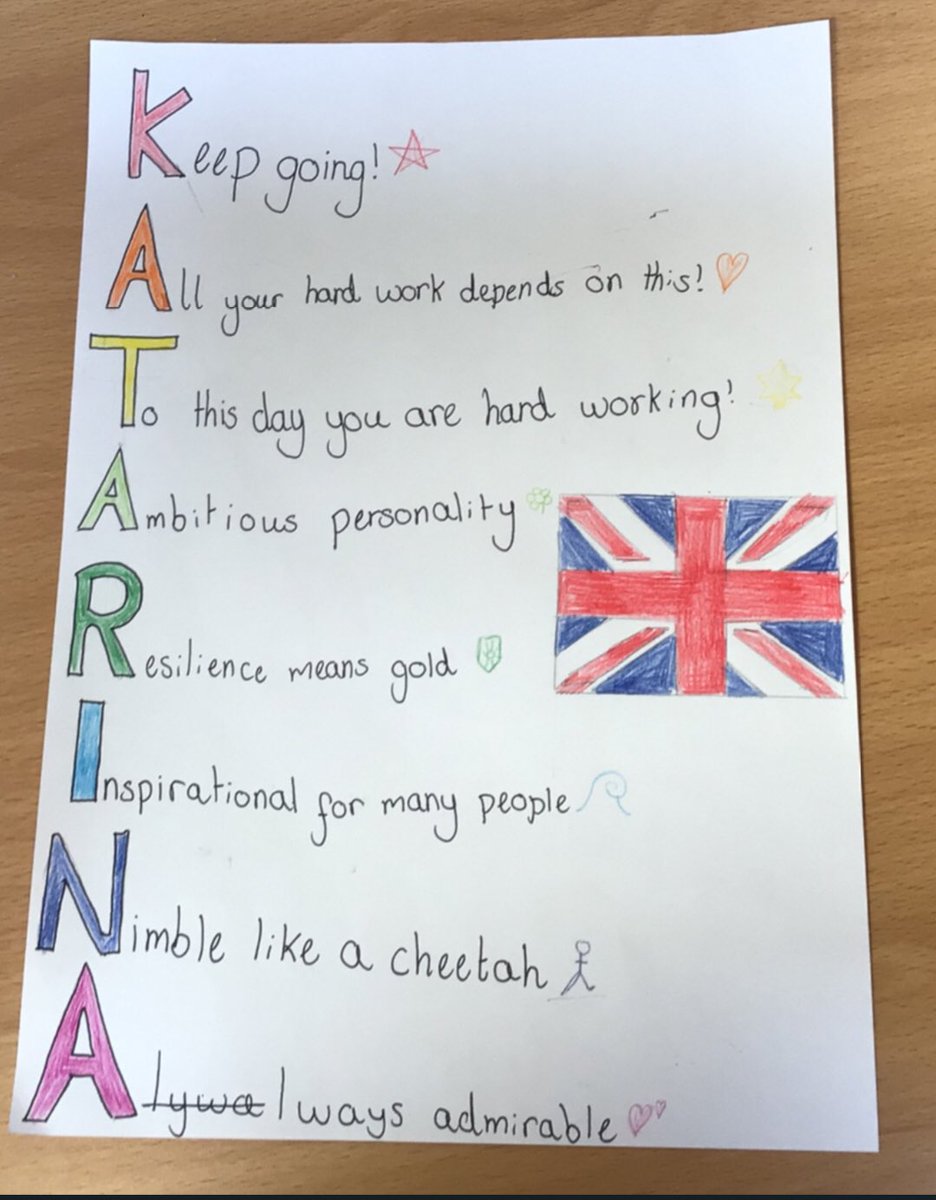 Keep going!
All your hard work depends on this!
To this day you are hard working!
Ambitious personality
Resilience means gold
Inspirational for many people
Nimble like a cheetah
A lywa lways admirable